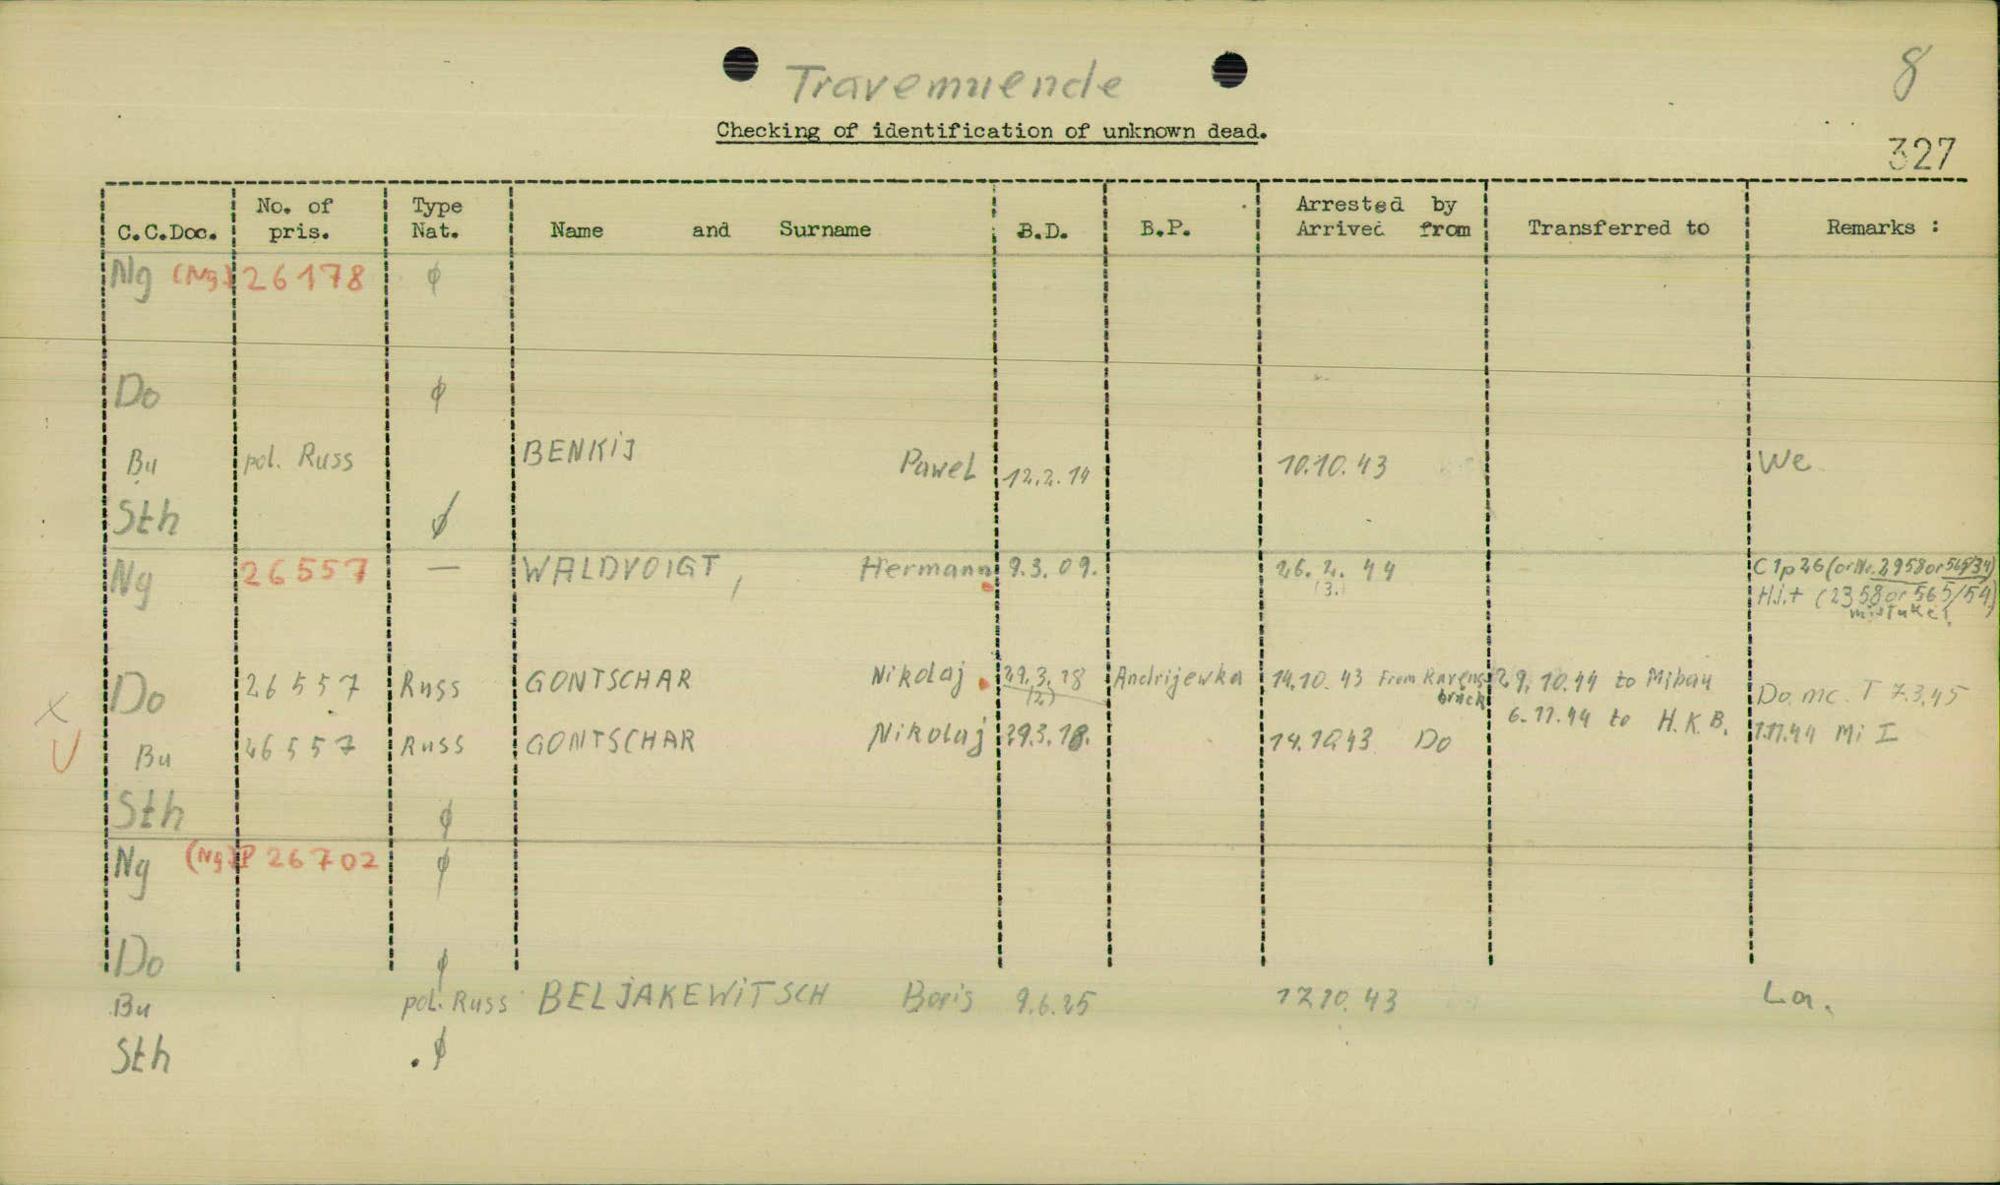 Travemuende
8
Checking of identification of unknown dead.
327
C.C.Doc. No. of pris. Type Nat. Name and Surname B.D. B.P. Arrested by Arrived from Transferred to Remarks :
Ng (Ng) 26178 ϕ
Do ϕ
Bu pol. Russ BENKIJ Pawel 12.2.14 10.10.43 We
Sth ϕ
Ng 26557 — WALDVOIGT, Hermann 9.3.09. 26.2.44 C1p26 (or Nr. 2958 or 56534)
(3.) H.i.+ (2358 or 565/54)
mistake!
Do 26557 Russ GONTSCHAR Nikolaj 29.3.18 Andrijewka 14.10.43 From Ravens 29.10.44 to Mibau Do. mc. T 7.3.45
(2) brück 6.11.44 to H.K.B.
X
V Bu 26557 Russ GONTSCHAR Nikolaj 29.3.18. 14.10.43 Do 1.11.44 Mi I
Sth ϕ
Ng (Ng) P 26702 ϕ
Do ϕ
Bu pol. Russ BELJAKEWITSCH Boris 9.6.25 17.10.43 La.
Sth ϕ